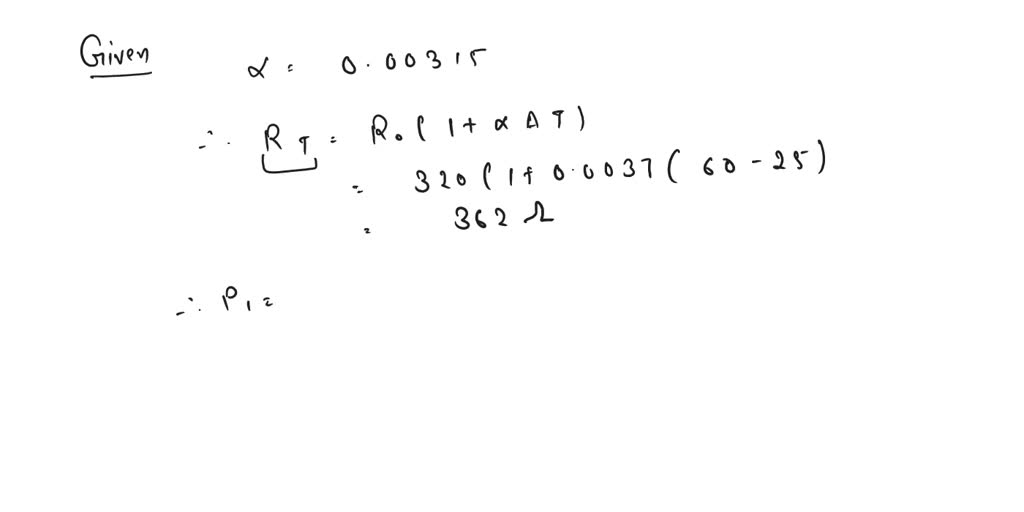 Given
α = 0.00315
∴ R_T = R₀(1 + α Δ T)
= 320(1 + 0.0037(60 - 25)
= 362 Ω
∴ P₁ =